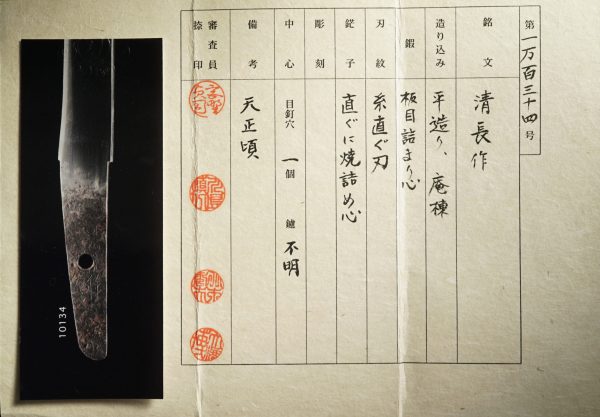 第一万百三十四号
銘文 清長作
造り込み 平造り、庵棟
鍛 板目詰まり心
刃紋 糸直ぐ刃
鋩子 直ぐに焼詰め心
彫刻
中心 目釘穴 一個 鑢 不明
備考 天正頃
審査員
捺印
10134